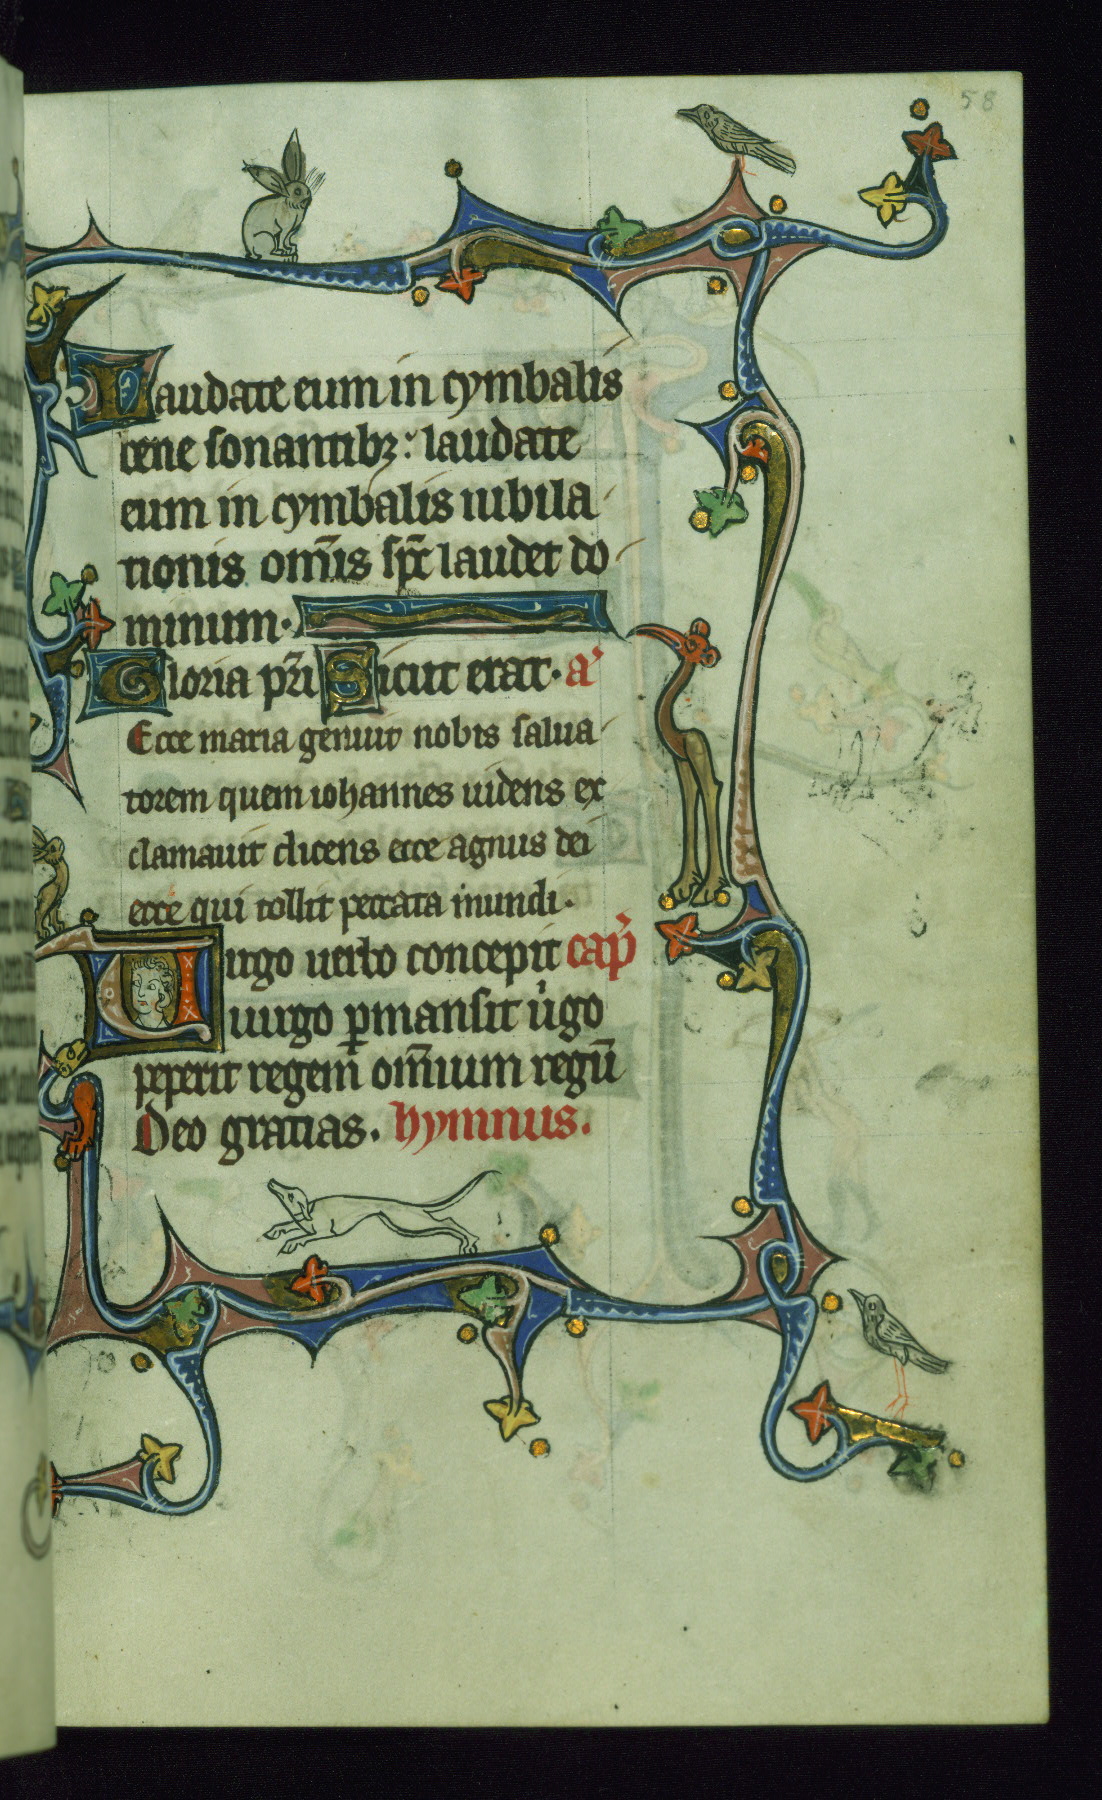 58
Laudate eum in cymbalis
bene sonantibꝫ: laudate
eum in cymbalis iubila
tionis om̄is sp̄c laudet do
minum.
Gloria pr̄i Sicut erat. a᷑
Ecce maria genuit nobis salua
torem quem iohannes uidens ex
clamauit dicens ecce agnus dei
ecce qui tollit peccata mundi.
Uirgo uerbo concepit cap̄
uirgo ꝑmansit u̍go
peperit regem om̄ium regū
Deo gratias. hymnus.